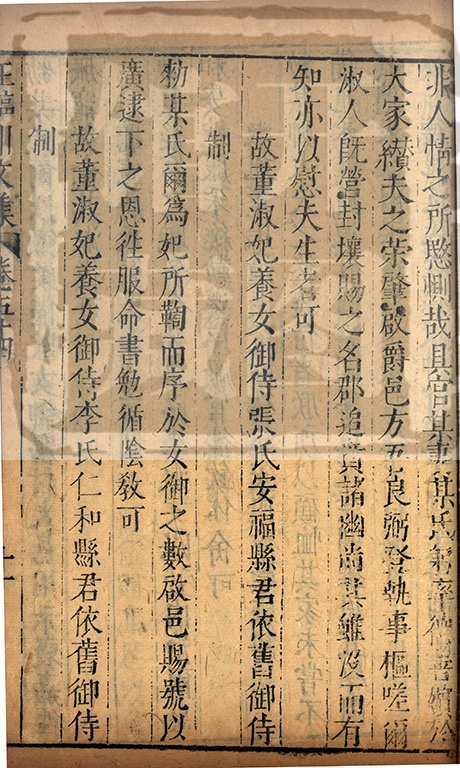 非人情之所愍惻哉具官某妻某氏
大家纘夫之荣肇啟爵邑方吾良弼登執事樞嗟爾
淑人既營封壤賜之名郡追賁諸幽尚其雖沒而有
知亦以慰夫生者可
故董淑妃養女御侍張氏安福縣君依舊御侍
制
勑某氏爾為妃所鞠而序於女御之數啟邑賜號以
廣逮下之恩徃服命書勉循陰敎可
故董淑妃養女御侍李氏仁和縣君依舊御侍
制
王臨川文集 卷五十四